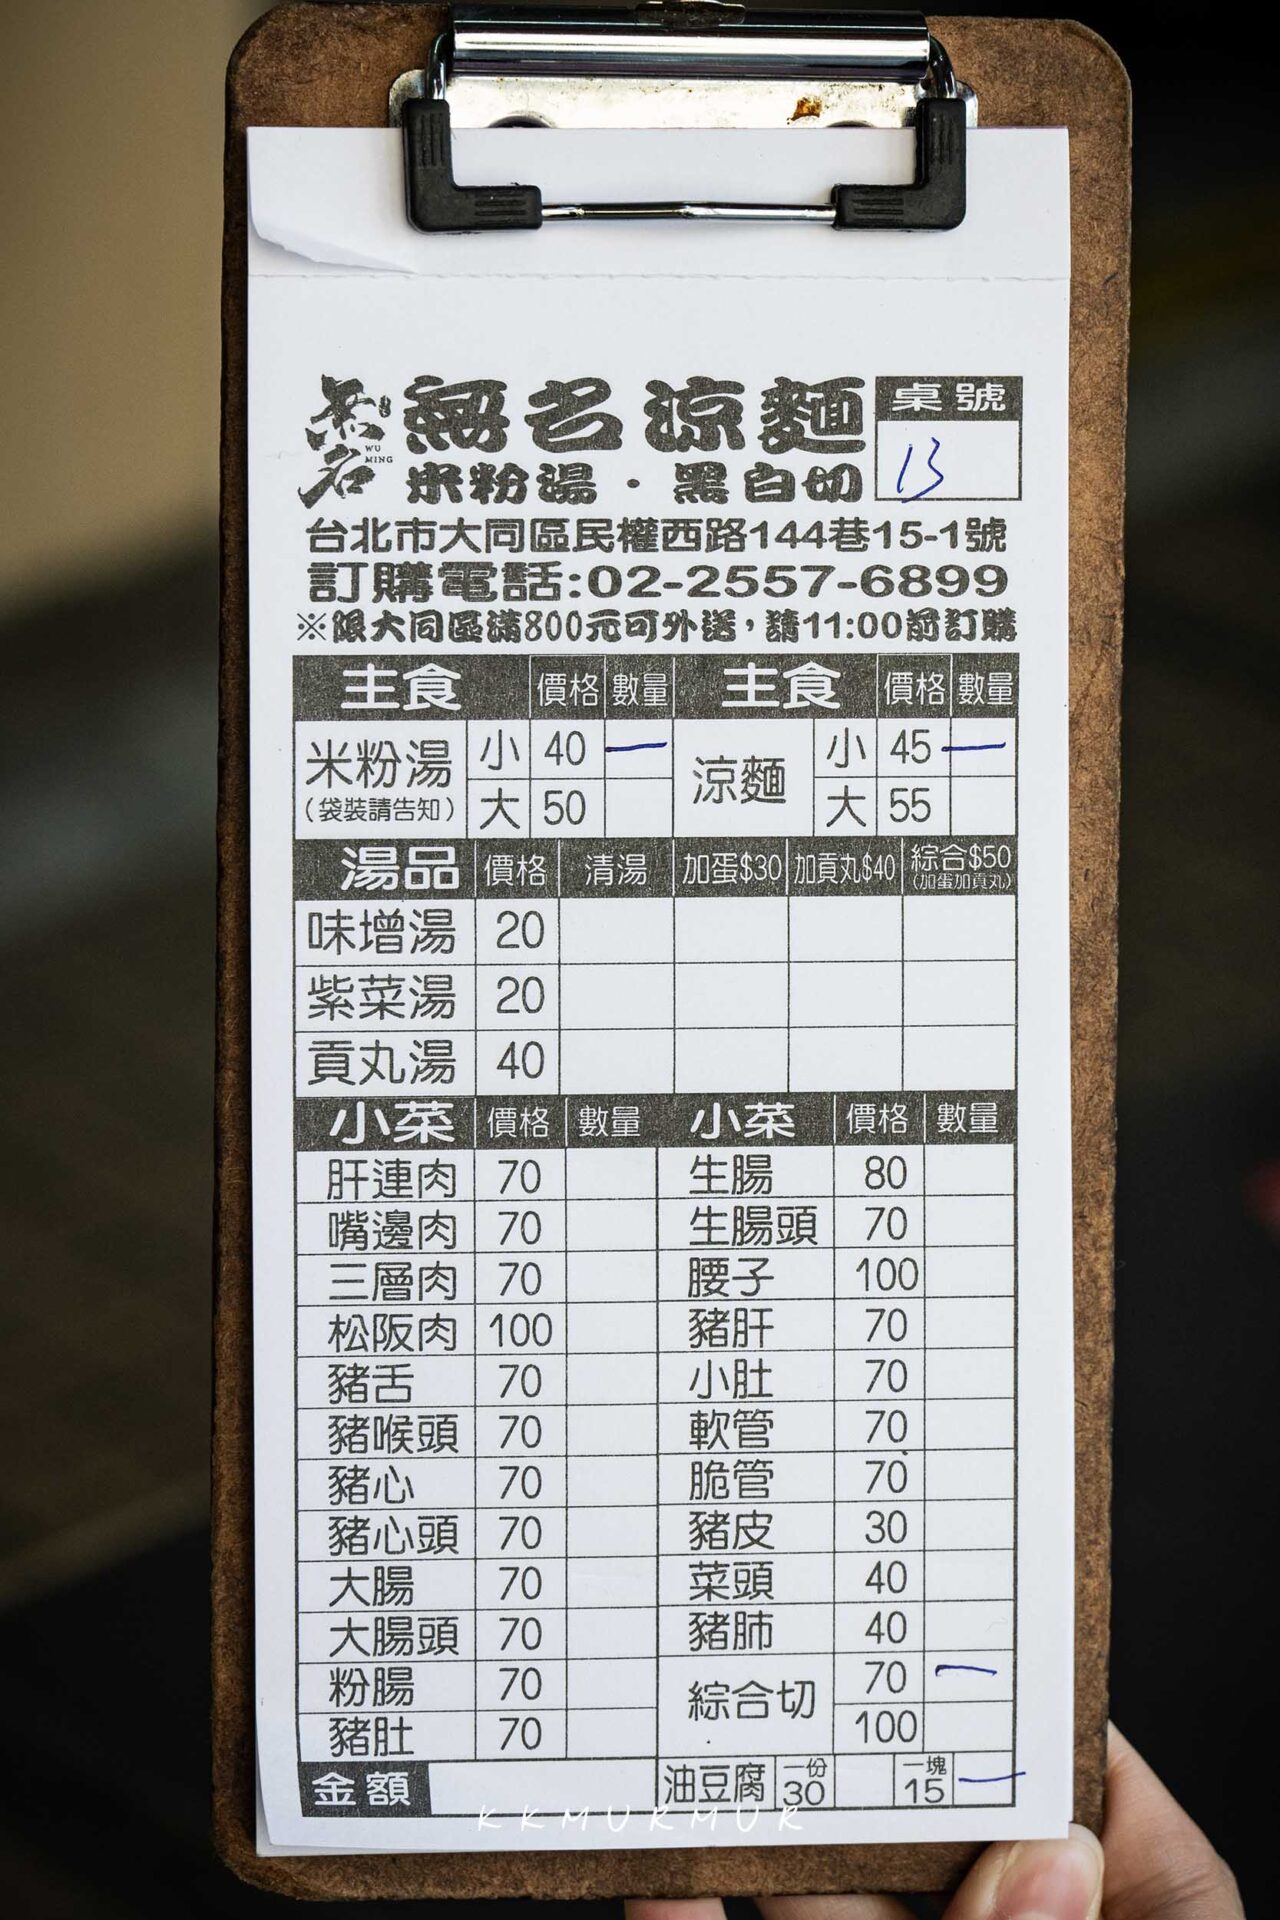 無名 WU MING
無名涼麵 桌號
米粉湯・黑白切 13
台北市大同區民權西路144巷15-1號
訂購電話:02-2557-6899
※限大同區滿800元可外送，請11:00前訂購
主食 價格 數量 主食 價格 數量
米粉湯 小 40 一 涼麵 小 45 一
(袋裝請告知) 大 50 大 55
湯品 價格 清湯 加蛋$30 加貢丸$40 綜合$50
(加蛋加貢丸)
味增湯 20
紫菜湯 20
貢丸湯 40
小菜 價格 數量 小菜 價格 數量
肝連肉 70 生腸 80
嘴邊肉 70 生腸頭 70
三層肉 70 腰子 100
松阪肉 100 豬肝 70
豬舌 70 小肚 70
豬喉頭 70 軟管 70
豬心 70 脆管 70
豬心頭 70 豬皮 30
大腸 70 菜頭 40
大腸頭 70 豬肺 40
粉腸 70 綜合切 70 一
豬肚 70 100
金額 油豆腐 一份 30 一塊 15 一
KKMURMUR